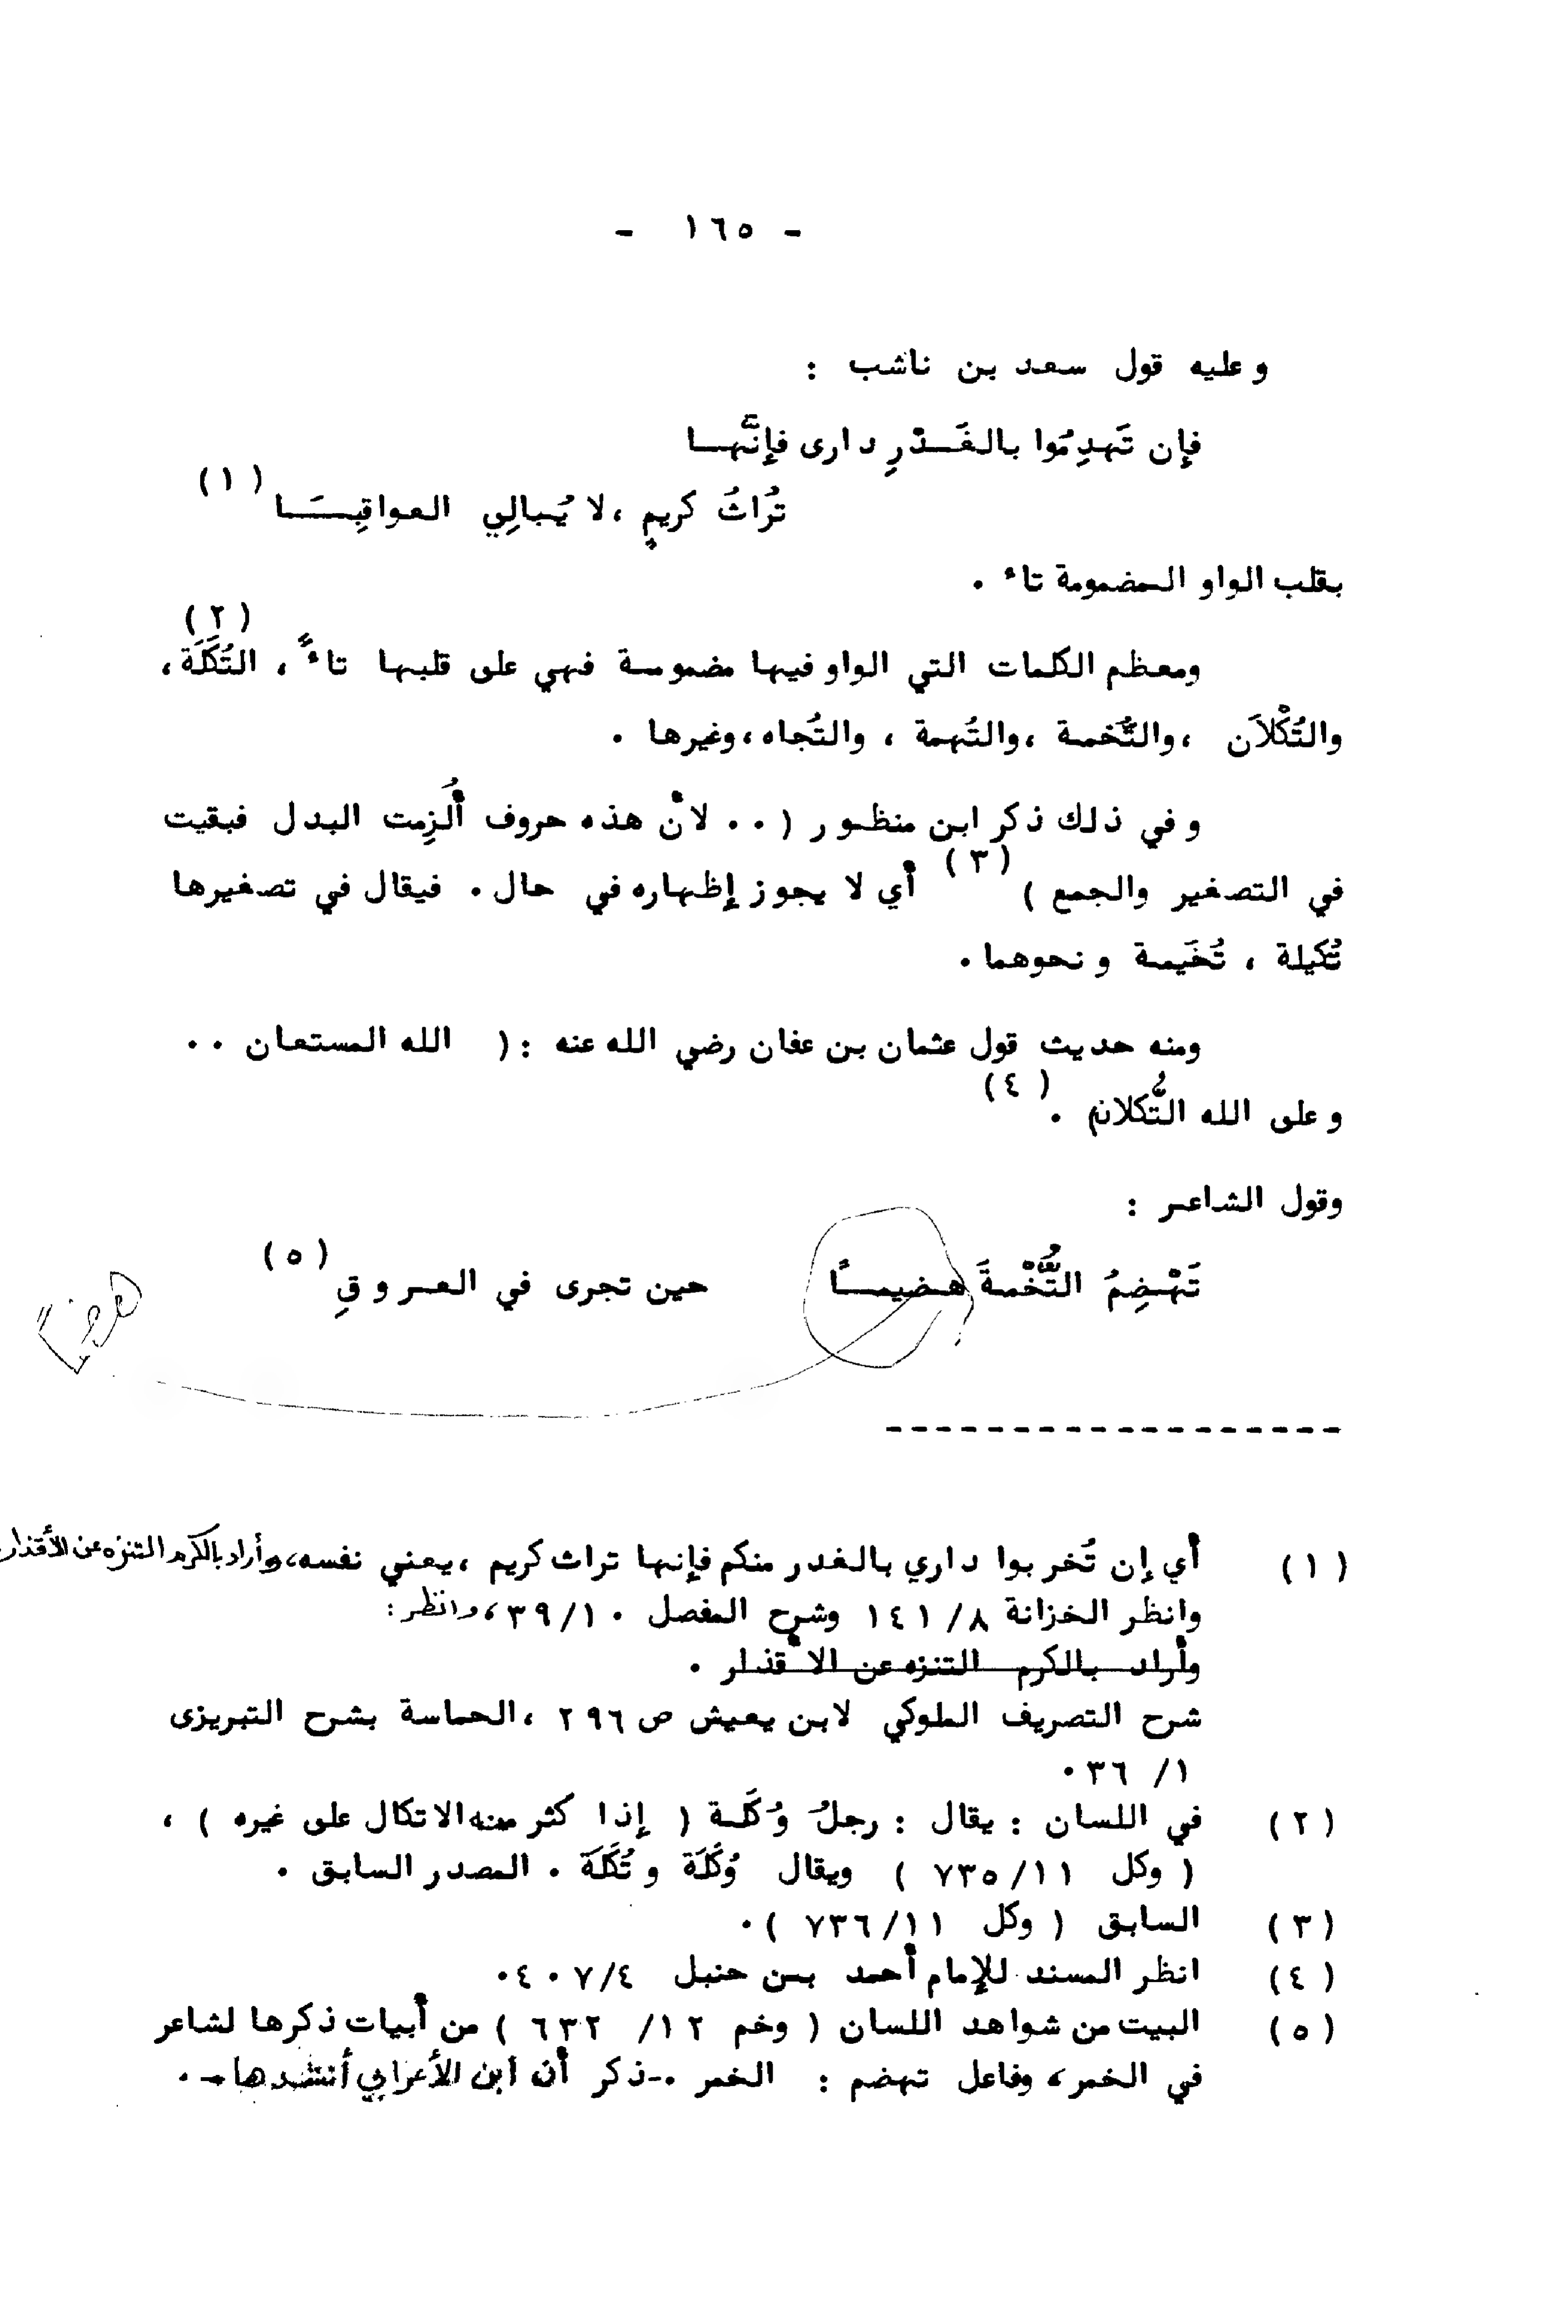 - ١٦٥ -
وعليه قول سعد بن ناشب :
فإن تَهدِمُوا بالغَدْرِ دارى فإنَّها
تُراثُ كريمٍ ، لا يُبالِي العواقِبَا (١)
بقلب الواو المضمومة تاء .
ومعظم الكلمات التي الواو فيها مضمومة فهي على قلبها تاءً ، التُكَلَة (٢) ،
والتُكْلاَن ، والتُّخمة ، والتُهمة ، والتُجاه ، وغيرها .
وفي ذلك ذكر ابن منظور ( . . لأن هذه حروف أُلزِمت البدل فبقيت
في التصغير والجمع ) (٣) أي لا يجوز إظهاره في حال . فيقال في تصغيرها
تُكيلة ، تُخَيمة ونحوهما .
ومنه حديث قول عثمان بن عفان رضي الله عنه : ( الله المستعان . .
وعلى الله التُّكلان) (٤) .
وقول الشاعر :
تَهْضِمُ التُّخْمةَ هضيماً حين تجرى في العروقِ (٥)
هضماً
------------------
(١) أي إن تُخربوا داري بالغدر منكم فإنها تراث كريم ، يعني نفسه، وأراد بالكرم التنزه عن الأقذار
وانظر الخزانة ٨/ ١٤١ وشرح المفصل ١٠/ ٣٩، وانظر :
وأراد بالكرم التنزه عن الأقذار .
شرح التصريف الملوكي لابن يعيش ص ٢٩٦ ، الحماسة بشرح التبريزى
١/ ٣٦ .
(٢) في اللسان : يقال : رجلٌ وُكَلة ( إذا كثر منه الاتكال على غيره ) ،
( وكل ١١/ ٧٣٥ ) ويقال وُكَلَة وتُكَلَة . المصدر السابق .
(٣) السابق ( وكل ١١/ ٧٣٦ ) .
(٤) انظر المسند للإمام أحمد بن حنبل ٤/ ٤٠٧ .
(٥) البيت من شواهد اللسان ( وخم ١٢/ ٦٣٢ ) من أبيات ذكرها لشاعر
في الخمر، وفاعل تهضم : الخمر .- ذكر أن ابن الأعرابي أنشدها - .